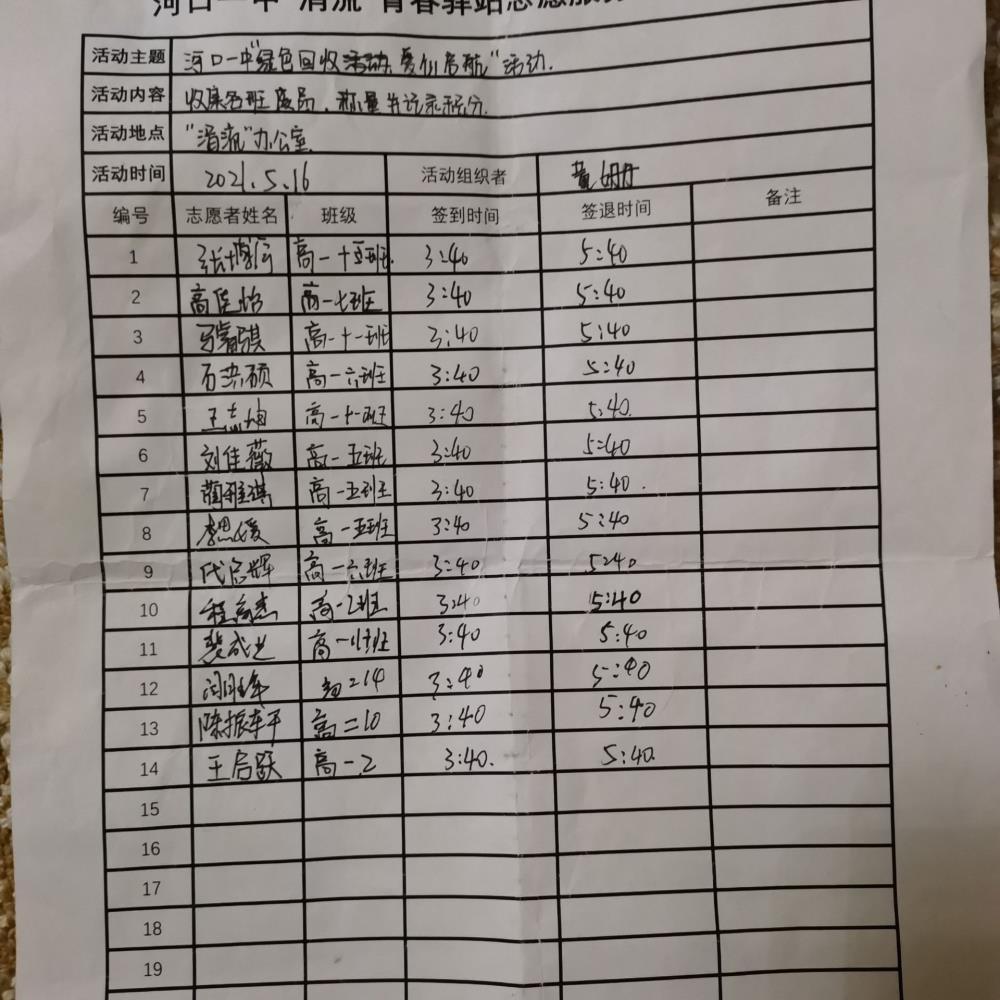 河口一中"清流"青春驿站志愿服务
活动主题 河口一中"绿色回收活动,爱心启航"活动.
活动内容 收集各班废品,称量并记录积分.
活动地点 "清流"办公室
活动时间 2021.5.16 活动组织者 黄姗
编号 志愿者姓名 班级 签到时间 签退时间 备注
1 高一十五班 3:40 5:40
2 高佳怡 高一七班 3:40 5:40
3 马睿骐 高一十一班 3:40 5:40
4 高一六班 3:40 5:40
5 王志坤 高一十一班 3:40 5:40
6 刘佳薇 高一五班 3:40 5:40
7 蔺雅淇 高一五班 3:40 5:40
8 李思媛 高一五班 3:40 5:40
9 代启辉 高一六班 3:40 5:40
10 程高杰 高一2班 3:40 5:40
11 裴成 高一 班 3:40 5:40
12 二14 3:40 5:40
13 陈振 高二10 3:40 5:40
14 王启跃 高一.2 3:40. 5:40.
15
16
17
18
19